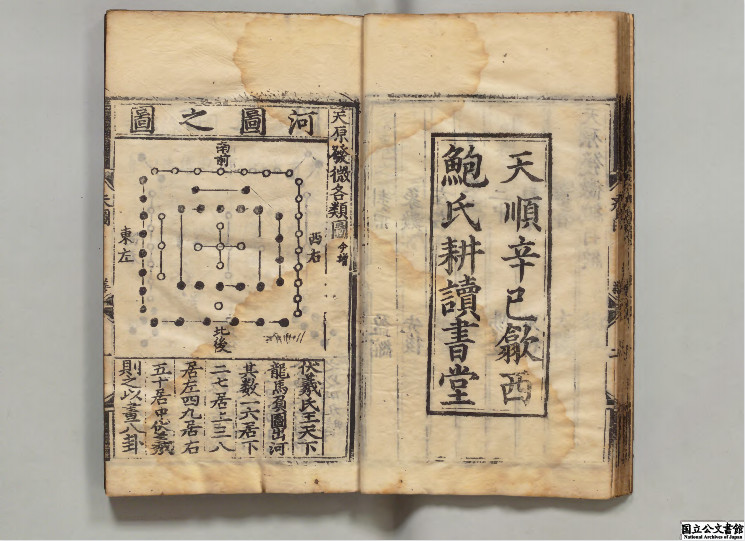 天順辛巳歙西
鮑氏耕讀書堂
天原發微各類圖
河圖之圖
南前
西右
東左
北後
伏羲氏王天下
龍馬負圖出河
其數一六居下
二七居上三八
居左四九居右
五十居中伏羲
則之以畫八卦
国立公文書館
National Archives of Japan